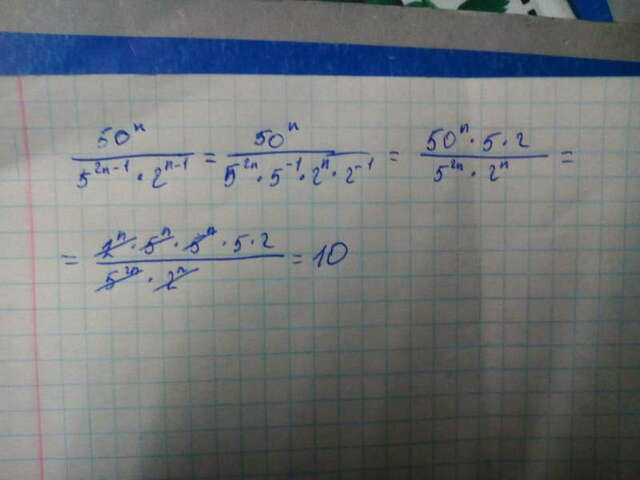 50ⁿ / (5²ⁿ⁻¹ · 2ⁿ⁻¹) = 50ⁿ / (5²ⁿ · 5⁻¹ · 2ⁿ · 2⁻¹) = (50ⁿ · 5 · 2) / (5²ⁿ · 2ⁿ) =
= (2ⁿ · 5ⁿ · 5ⁿ · 5 · 2) / (5²ⁿ · 2ⁿ) = 10